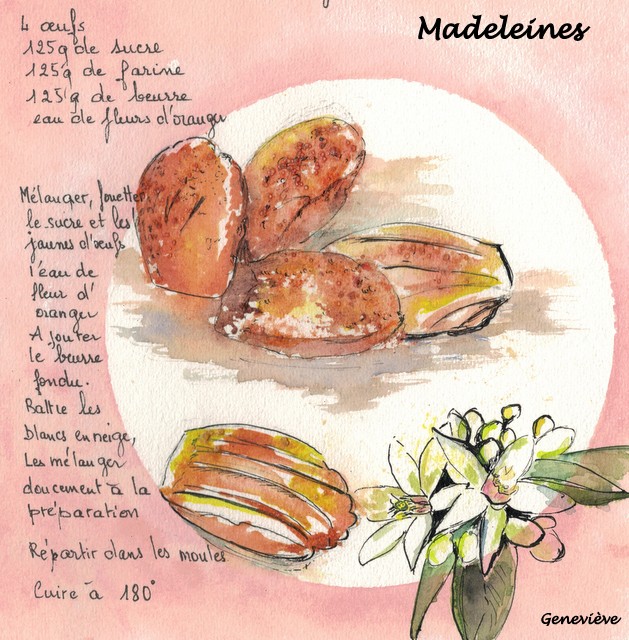 Madeleines
4 œufs
125g de sucre
125g de farine
125g de beurre
eau de fleurs d'oranger
Mélanger, fouetter
le sucre et les
jaunes d'œufs
l'eau de
fleur d'
oranger
Ajouter
le beurre
fondu.
Battre les
blancs en neige,
Les mélanger
doucement à la
préparation
Répartir dans les moules
Cuire à 180°
Geneviève